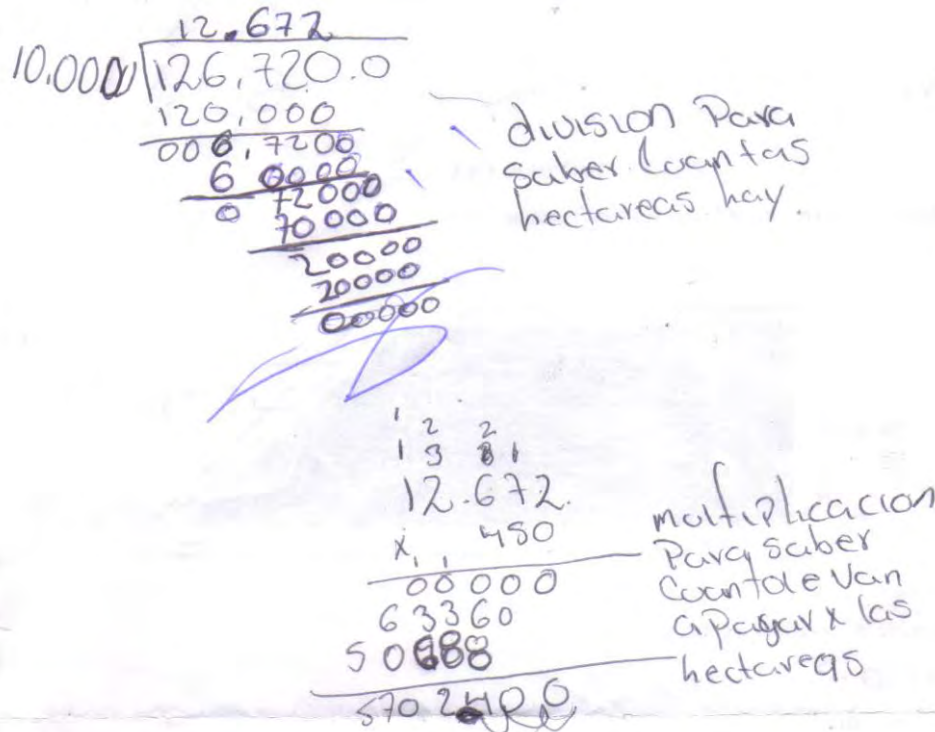 12.672
10,000 126,720.0
120,000
006,7200
6 0000
0 72000
70000
20000
20000
00000
division Para
saber Cuantas
hectareas hay.
1 2 2
1 3 1
12.672.
x 450
00000
63360
50688
5702400
multiplicacion
Para saber
Cuanto le van
a Pagar x las
hectareas